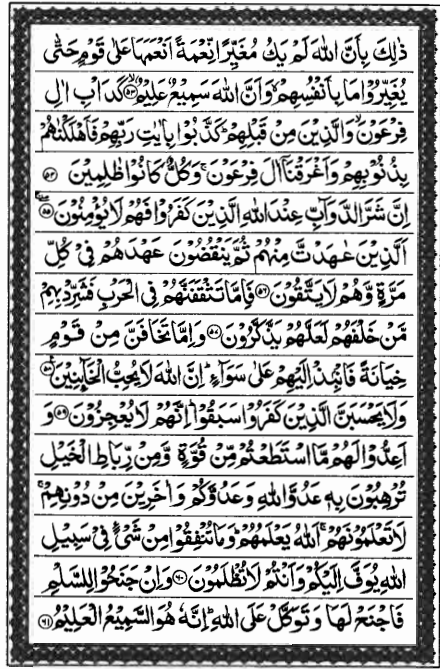 ذٰلِكَ بِاَنَّ اللّٰهَ لَمْ يَكُ مُغَيِّرًا نِّعْمَةً اَنْعَمَهَا عَلٰى قَوْمٍ حَتّٰى
يُغَيِّرُوْا مَا بِاَنْفُسِهِمْ ۙ وَاَنَّ اللّٰهَ سَمِيْعٌ عَلِيْمٌ ۙ‏﴿۵۳﴾ كَدَاْبِ اٰلِ
فِرْعَوْنَ ۙ وَالَّذِيْنَ مِنْ قَبْلِهِمْ ؕ كَذَّبُوْا بِاٰيٰتِ رَبِّهِمْ فَاَهْلَكْنٰهُمْ
بِذُنُوْبِهِمْ وَاَغْرَقْنَاۤ اٰلَ فِرْعَوْنَ ۚ وَكُلٌّ كَانُوْا ظٰلِمِيْنَ ﴿۵۴﴾
اِنَّ شَرَّ الدَّوَآبِّ عِنْدَ اللّٰهِ الَّذِيْنَ كَفَرُوْا فَهُمْ لَا يُؤْمِنُوْنَ ﴿۵۵﴾
اَلَّذِيْنَ عٰهَدْتَّ مِنْهُمْ ثُمَّ يَنْقُضُوْنَ عَهْدَهُمْ فِيْ كُلِّ
مَرَّةٍ وَّهُمْ لَا يَتَّقُوْنَ ﴿۵۶﴾ فَاِمَّا تَثْقَفَنَّهُمْ فِي الْحَرْبِ فَشَرِّدْ بِهِمْ
مَّنْ خَلْفَهُمْ لَعَلَّهُمْ يَذَّكَّرُوْنَ ﴿۵۷﴾ وَاِمَّا تَخَافَنَّ مِنْ قَوْمٍ
خِيَانَةً فَانْۢبِذْ اِلَيْهِمْ عَلٰى سَوَآءٍ ؕ اِنَّ اللّٰهَ لَا يُحِبُّ الْخَآئِنِيْنَ ﴿۵۸﴾
وَلَا يَحْسَبَنَّ الَّذِيْنَ كَفَرُوْا سَبَقُوْا ؕ اِنَّهُمْ لَا يُعْجِزُوْنَ ﴿۵۹﴾ وَ
اَعِدُّوْا لَهُمْ مَّا اسْتَطَعْتُمْ مِّنْ قُوَّةٍ وَّمِنْ رِّبَاطِ الْخَيْلِ
تُرْهِبُوْنَ بِهٖ عَدُوَّ اللّٰهِ وَعَدُوَّكُمْ وَاٰخَرِيْنَ مِنْ دُوْنِهِمْ ۚ
لَا تَعْلَمُوْنَهُمْ ۚ اَللّٰهُ يَعْلَمُهُمْ ؕ وَمَا تُنْفِقُوْا مِنْ شَيْءٍ فِيْ سَبِيْلِ
اللّٰهِ يُوَفَّ اِلَيْكُمْ وَاَنْتُمْ لَا تُظْلَمُوْنَ ﴿۶۰﴾ وَاِنْ جَنَحُوْا لِلسَّلْمِ
فَاجْنَحْ لَهَا وَتَوَكَّلْ عَلَى اللّٰهِ ؕ اِنَّهٗ هُوَ السَّمِيْعُ الْعَلِيْمُ ﴿۶۱﴾